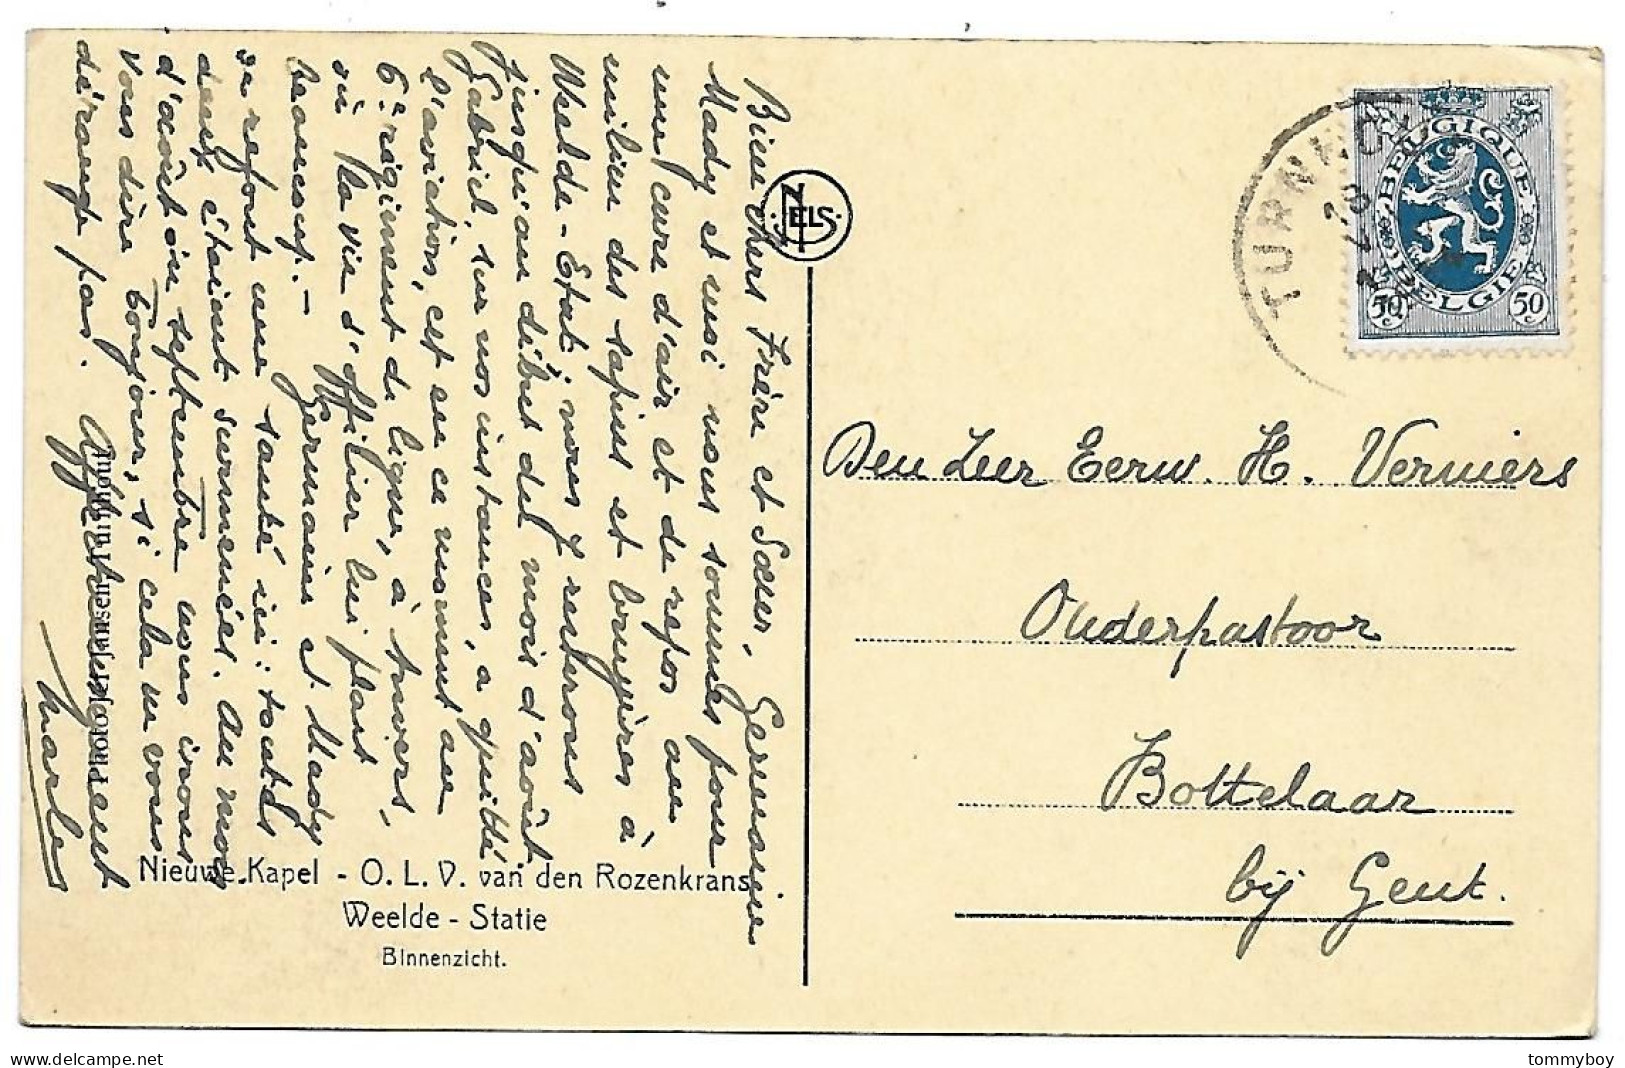 Bien chers Frère et Sœur, Germaine
Mady et ussi nous sommes pour
une cure d'air et de repos au
milieu des sapins et bruyères à
Weelde-Etat; nous y resterons
jusqu'au début du mois d'août
Gabriel, sur nos instances, a quitté
l'aviation, est en ce moment au
6e régiment de ligne, à Anvers,
où la vie d'officier lui plaît
beaucoup. — Germaine et Mady
se refont une santé ici: toutes
deux étaient surmenées. Au mois
d'août ou septembre nous irons
vous dire bonjour, si cela ne vous
dérange pas. Affectueusement
Charles
NELS
Photo Jansen Turnhout
Nieuwe Kapel - O. L. V. van den Rozenkrans
Weelde - Statie
Binnenzicht.
TURNHOUT
BELGIQUE
BELGIE
50 c
50 c
Den Zeer Eerw. H. Vermiers
Onderpastoor
Bottelaar
bij Gent.
tommyboy